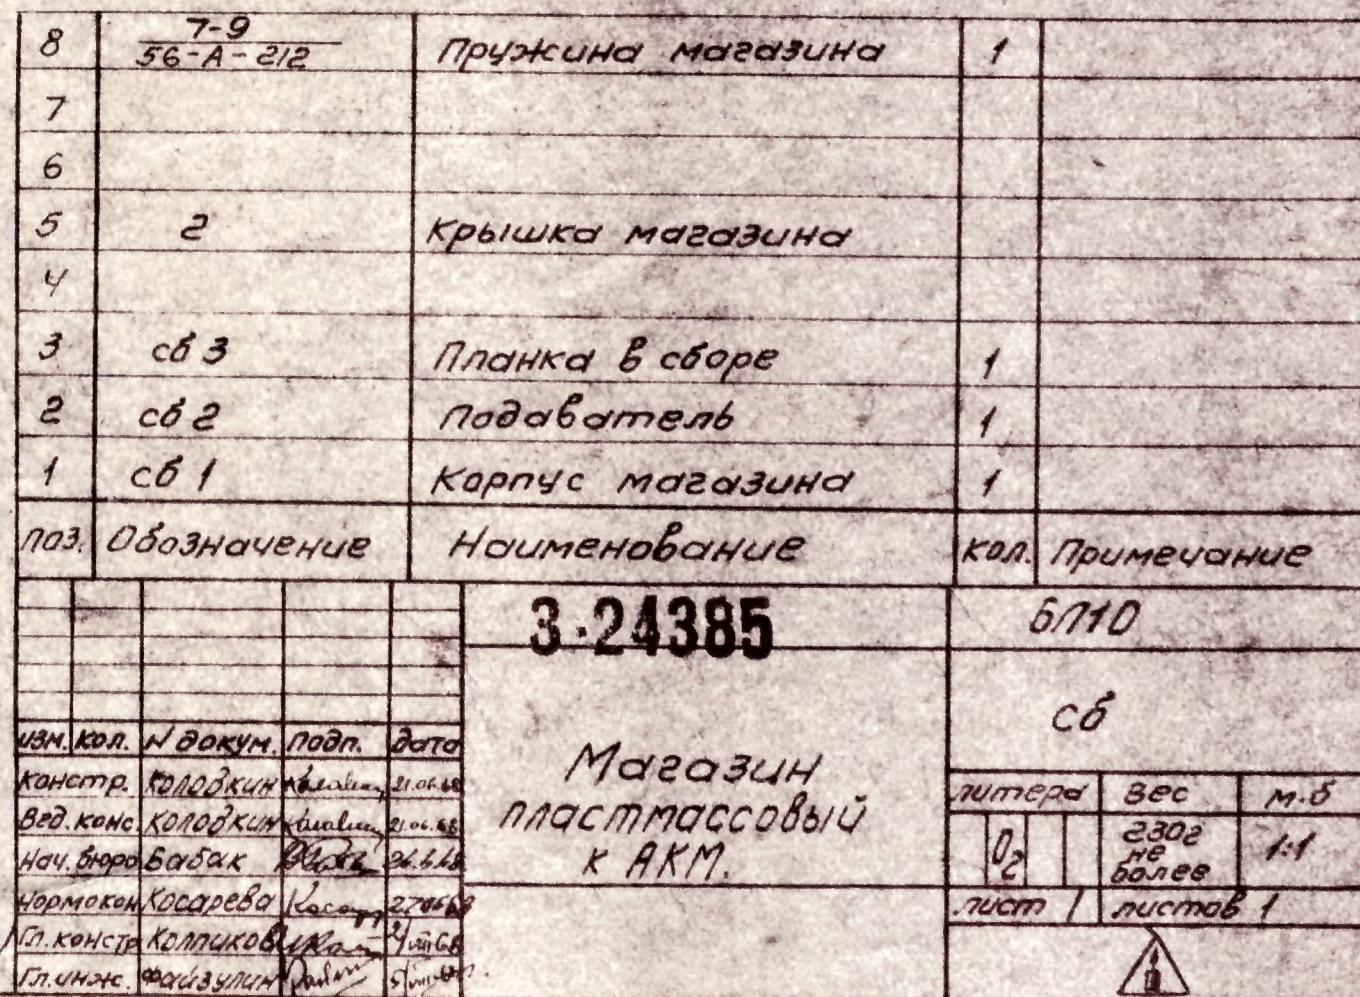 8 7-9 Пружина магазина 1
56-А-212
7
6
5 2 Крышка магазина
4
3 сб 3 Планка в сборе 1
2 сб 2 Подаватель 1
1 сб 1 Корпус магазина 1
поз. Обозначение Наименование кол. Примечание
3·24385 6Л10
сб
изм. кол. N докум. подп. дата
Магазин
пластмассовый
к АКМ.
констр. Колодкин 21.06.68
Вед. конс Колодкин 21.06.68
Нач. бюро Бабак
Нормокон Косарева 27.06.68
Гл. констр Колпиков
Гл. инж. Файзулин
литера вес м-б
О2 230г
не
более
1:1
лист 1 листов 1